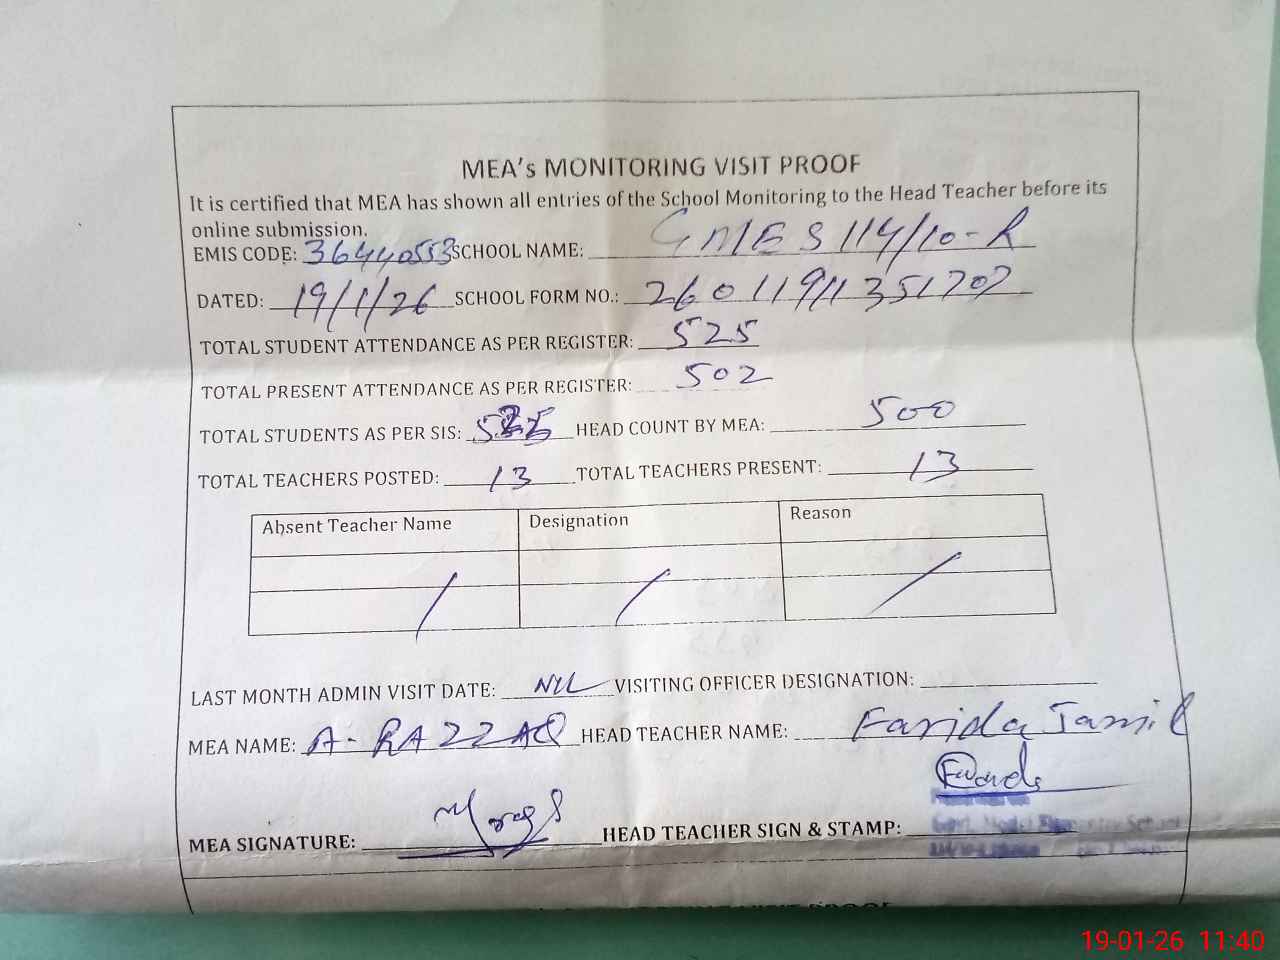 MEA's MONITORING VISIT PROOF
It is certified that MEA has shown all entries of the School Monitoring to the Head Teacher before its
online submission.
EMIS CODE: 36440553 SCHOOL NAME: GMES 114/10-R
DATED: 19/1/26 SCHOOL FORM NO.: 260119111351707
TOTAL STUDENT ATTENDANCE AS PER REGISTER: 525
TOTAL PRESENT ATTENDANCE AS PER REGISTER: 502
TOTAL STUDENTS AS PER SIS: HEAD COUNT BY MEA: 500
TOTAL TEACHERS POSTED: 13 TOTAL TEACHERS PRESENT: 13
Absent Teacher Name Designation Reason
LAST MONTH ADMIN VISIT DATE: NIL VISITING OFFICER DESIGNATION:
MEA NAME: A-RAZZAQ HEAD TEACHER NAME: Farida Jamil
MEA SIGNATURE: HEAD TEACHER SIGN & STAMP:
Govt. Model Elementary School
19-01-26 11:40